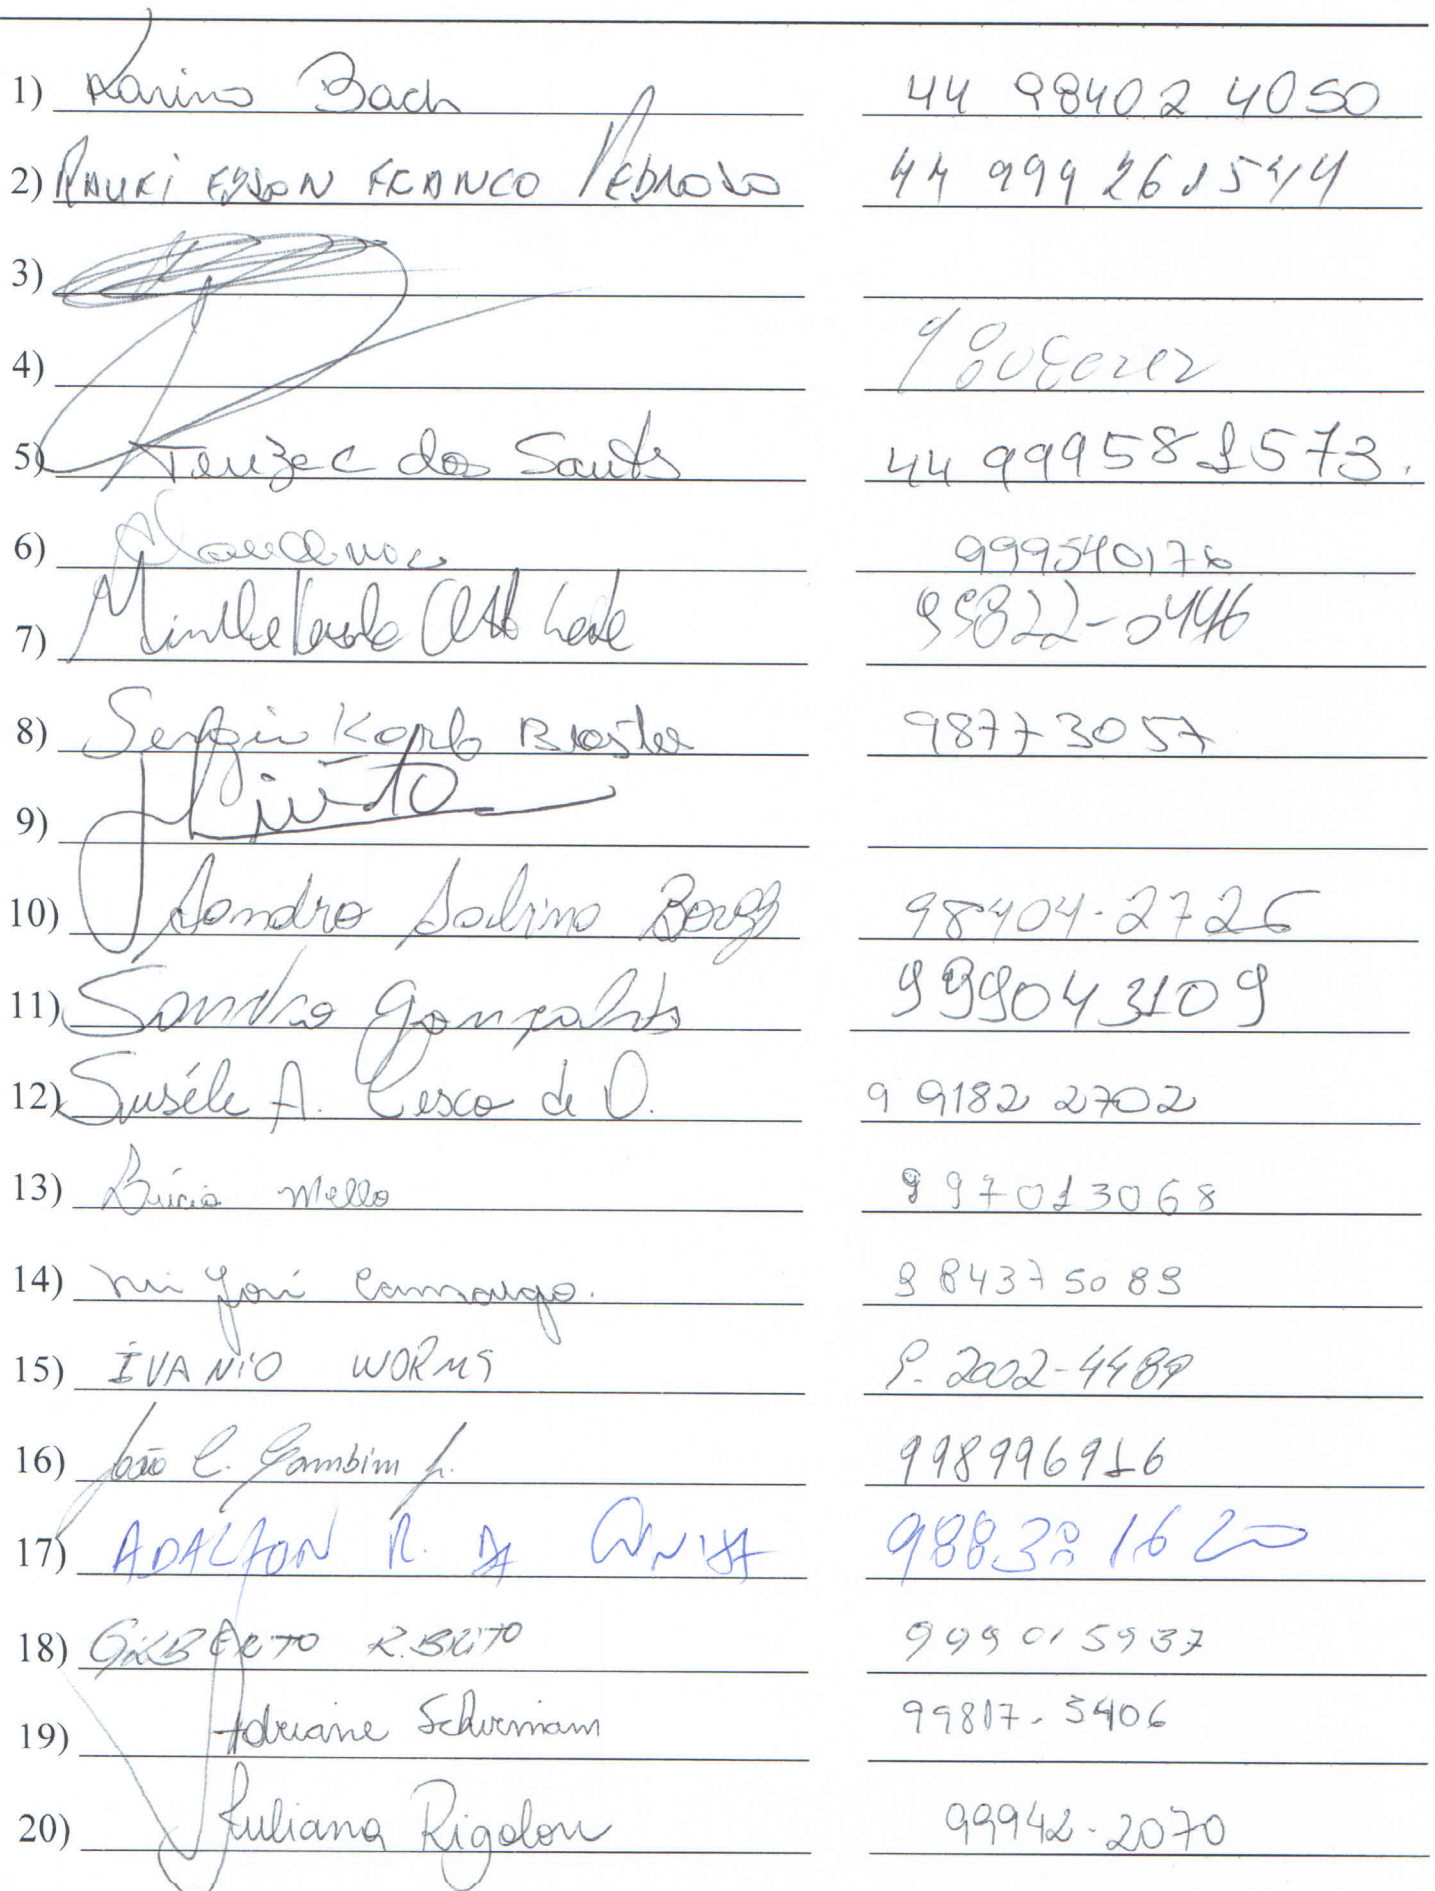 1) Karina Bach 44 98402 4050
2) RAURI EDSON FRANCO PEDROSO 44 999 261544
3)
4)
5) dos Santos 44 999581573.
6) 999540176
7) 99822-0446
8) Sergio Karlo 98773057
9)
10) Sandro Sabino Borges 98404-2726
11) Sandra Gonçalves 999043109
12) Suséle A. Cesco de O. 9 9182 2702
13) Lúcia Mello 997013068
14) José Camargo. 984375089
15) IVANIO WORMS 9.2002-4489
16) João C. Gambim Jr. 998996916
17) ADAILTON R. DA CUNHA 98838 1620
18) GILBERTO R. BRITO 999015937
19) Adriane Schirmann 99817-5406
20) Juliana Rigolon 99942-2070